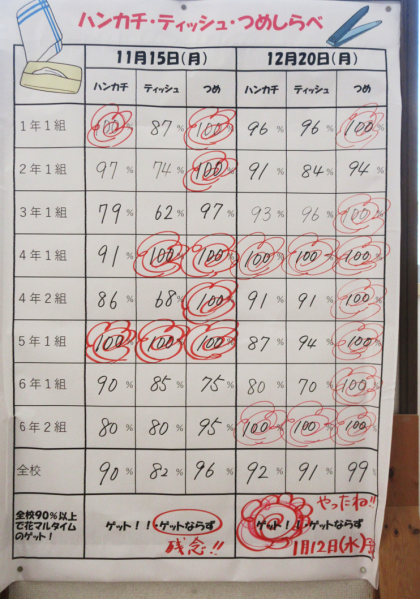 ハンカチ・ティッシュ・つめしらべ
11月15日(月) 12月20日(月)
ハンカチ ティッシュ つめ ハンカチ ティッシュ つめ
1年1組 100% 87% 100% 96% 96% 100%
2年1組 97% 74% 100% 91% 84% 94%
3年1組 79% 62% 97% 93% 96% 100%
4年1組 91% 100% 100% 100% 100% 100%
4年2組 86% 68% 100% 91% 91% 100%
5年1組 100% 100% 100% 87% 94% 100%
6年1組 90% 85% 75% 80% 70% 100%
6年2組 80% 80% 95% 100% 100% 100%
全校 90% 82% 96% 92% 91% 99%
全校90%以上
で花マルタイム
のゲット!
ゲット!!・ゲットならず
残念!!
やったね!!
ゲット!!・ゲットならず
1月12日(水)